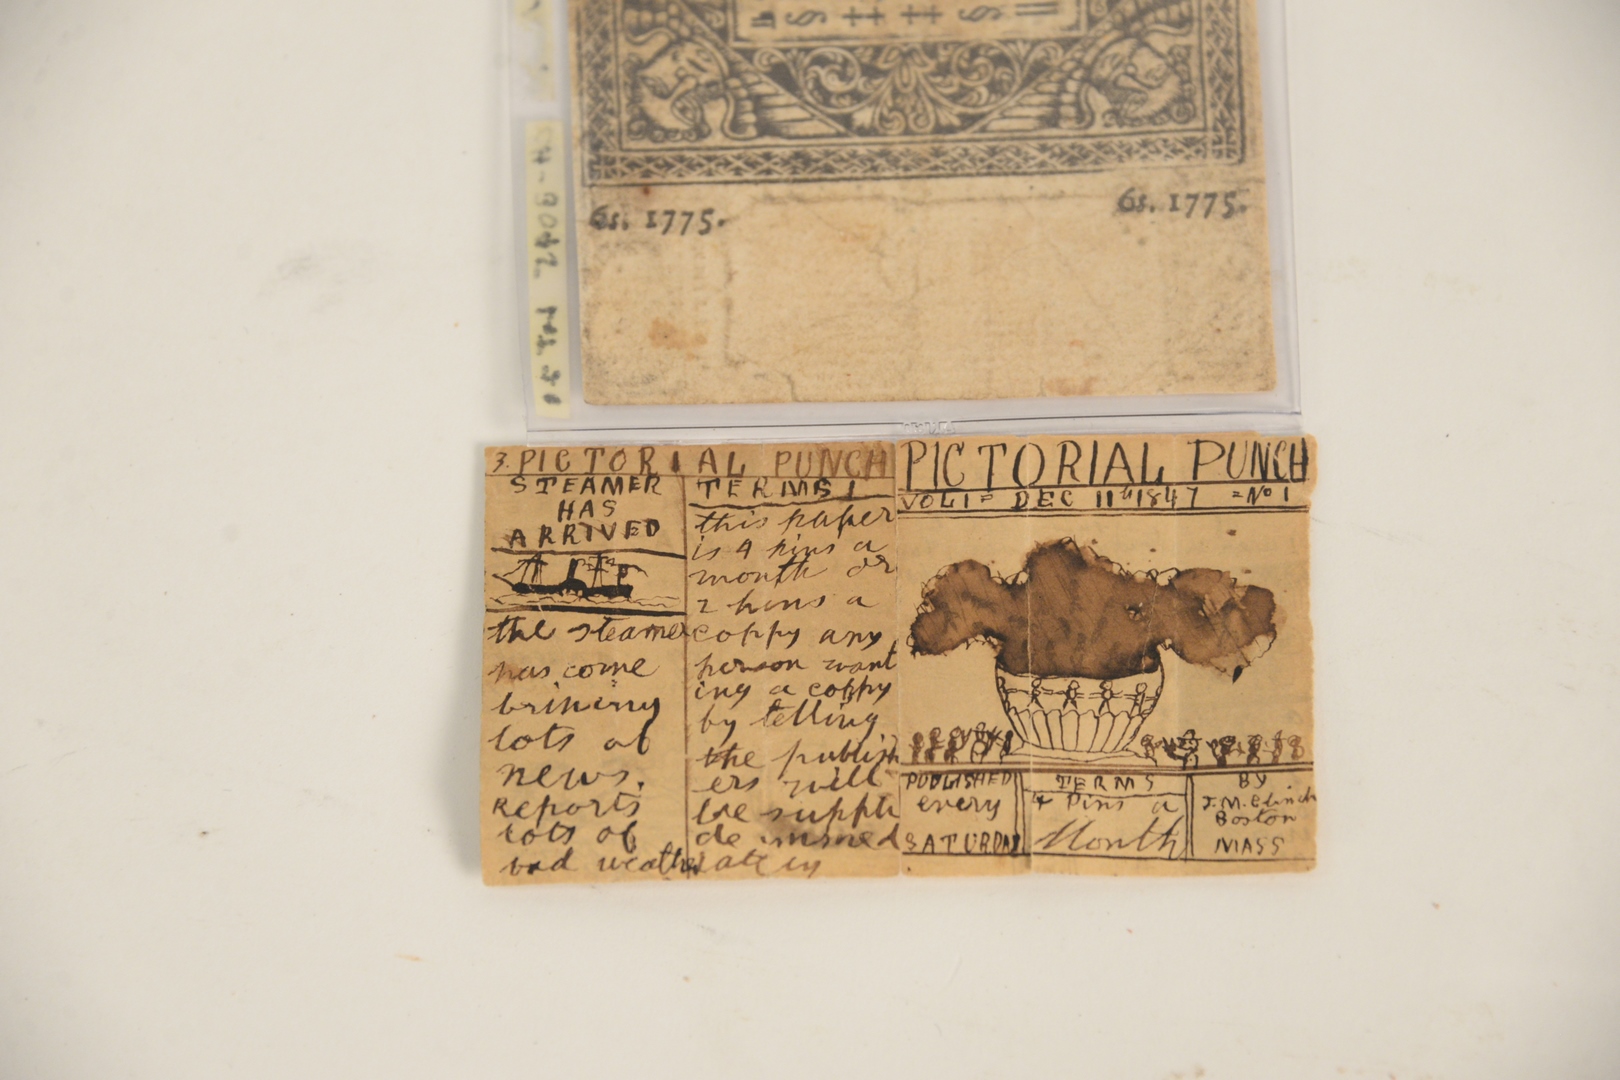 6s. 1775.
6s. 1775.
3. PICTORIAL PUNCH
STEAMER
HAS
ARRIVED
the steamer
has come
brining
lots of
news.
Reports
lots of
bad weather
TERMS!
this paper
is 4 pins a
month or
2 pins a
coppy any
person want
ing a coppy
by telling
the publish
ers will
be suppli
ately
PICTORIAL PUNCH
VOL 1 = DEC 11th 1847 = No 1
PUBLISHED
every
SATURDAY
TERMS
4 Pins a
Month
BY
J.M. Clinch
Boston
MASS